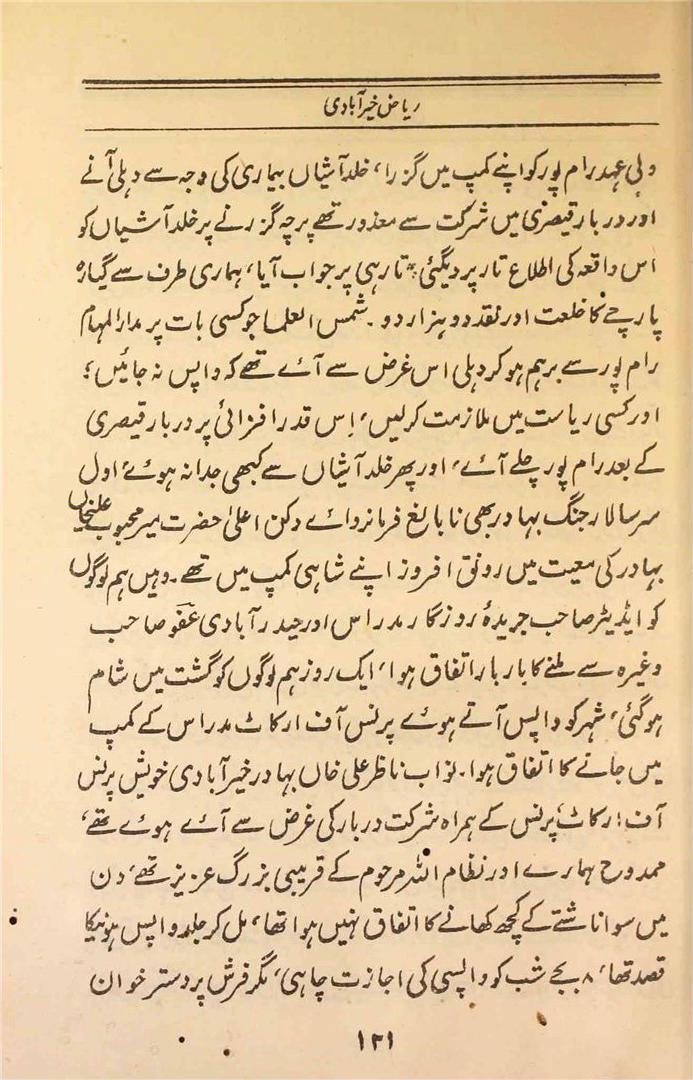 ریاض خیرآبادی
ولی عہد رام پور کو اپنے کمپ میں گزرا، خلد آشیاں بیماری کی وجہ سے دہلی آنے
اور دربار قیصری میں شرکت سے معذور تھے پرچہ گزرنے پر خلد آشیاں کو
اس واقعہ کی اطلاع تار پر دیگئی، تار ہی پر جواب آیا، ہماری طرف سے گیارہ
پارچے کا خلعت اور نقد دو ہزار دو۔ شمس العلما جو کسی بات پر مدار المہام
رام پور سے برہم ہو کر دہلی اس غرض سے آئے تھے کہ واپس نہ جائیں؛
اور کسی ریاست میں ملازمت کرلیں، اِس قدر افزائی پر دربار قیصری
کے بعد رام پور چلے آئے، اور پھر خلد آشیاں سے کبھی جدا نہ ہوئے، اول
سر سالار جنگ بہادر بھی نابالغ فرمانروائے دکن اعلیٰ حضرت میر محبوب علیخاں
بہادر کی معیت میں رونق افروز اپنے شاہی کمپ میں تھے۔ وہیں ہم لوگوں
کو ایڈیٹر صاحب جریدۂ روزگار مدراس اور حیدرآبادی عفو صاحب
وغیرہ سے ملنے کا بار بار اتفاق ہوا، ایک روز ہم لوگوں کو گشت میں شام
ہوگئی، شہر کو واپس آتے ہوئے پرنس آف ارکاٹ مدراس کے کمپ
میں جانے کا اتفاق ہوا۔ نواب ناظر علی خاں بہادر خیرآبادی خویش پرنس
آف ارکاٹ، پرنس کے ہمراہ شرکت دربار کی غرض سے آئے ہوئے تھے،
ممدوح ہمارے اور نظام اللہ مرحوم کے قریبی بزرگ عزیز تھے، دن
میں سوا ناشتے کے کچھ کھانے کا اتفاق نہیں ہوا تھا، مل کر جلد واپس ہونیکا
قصد تھا، ۸ بجے شب کو واپسی کی اجازت چاہی، مگر فرش پر دستر خوان
۱۲۱